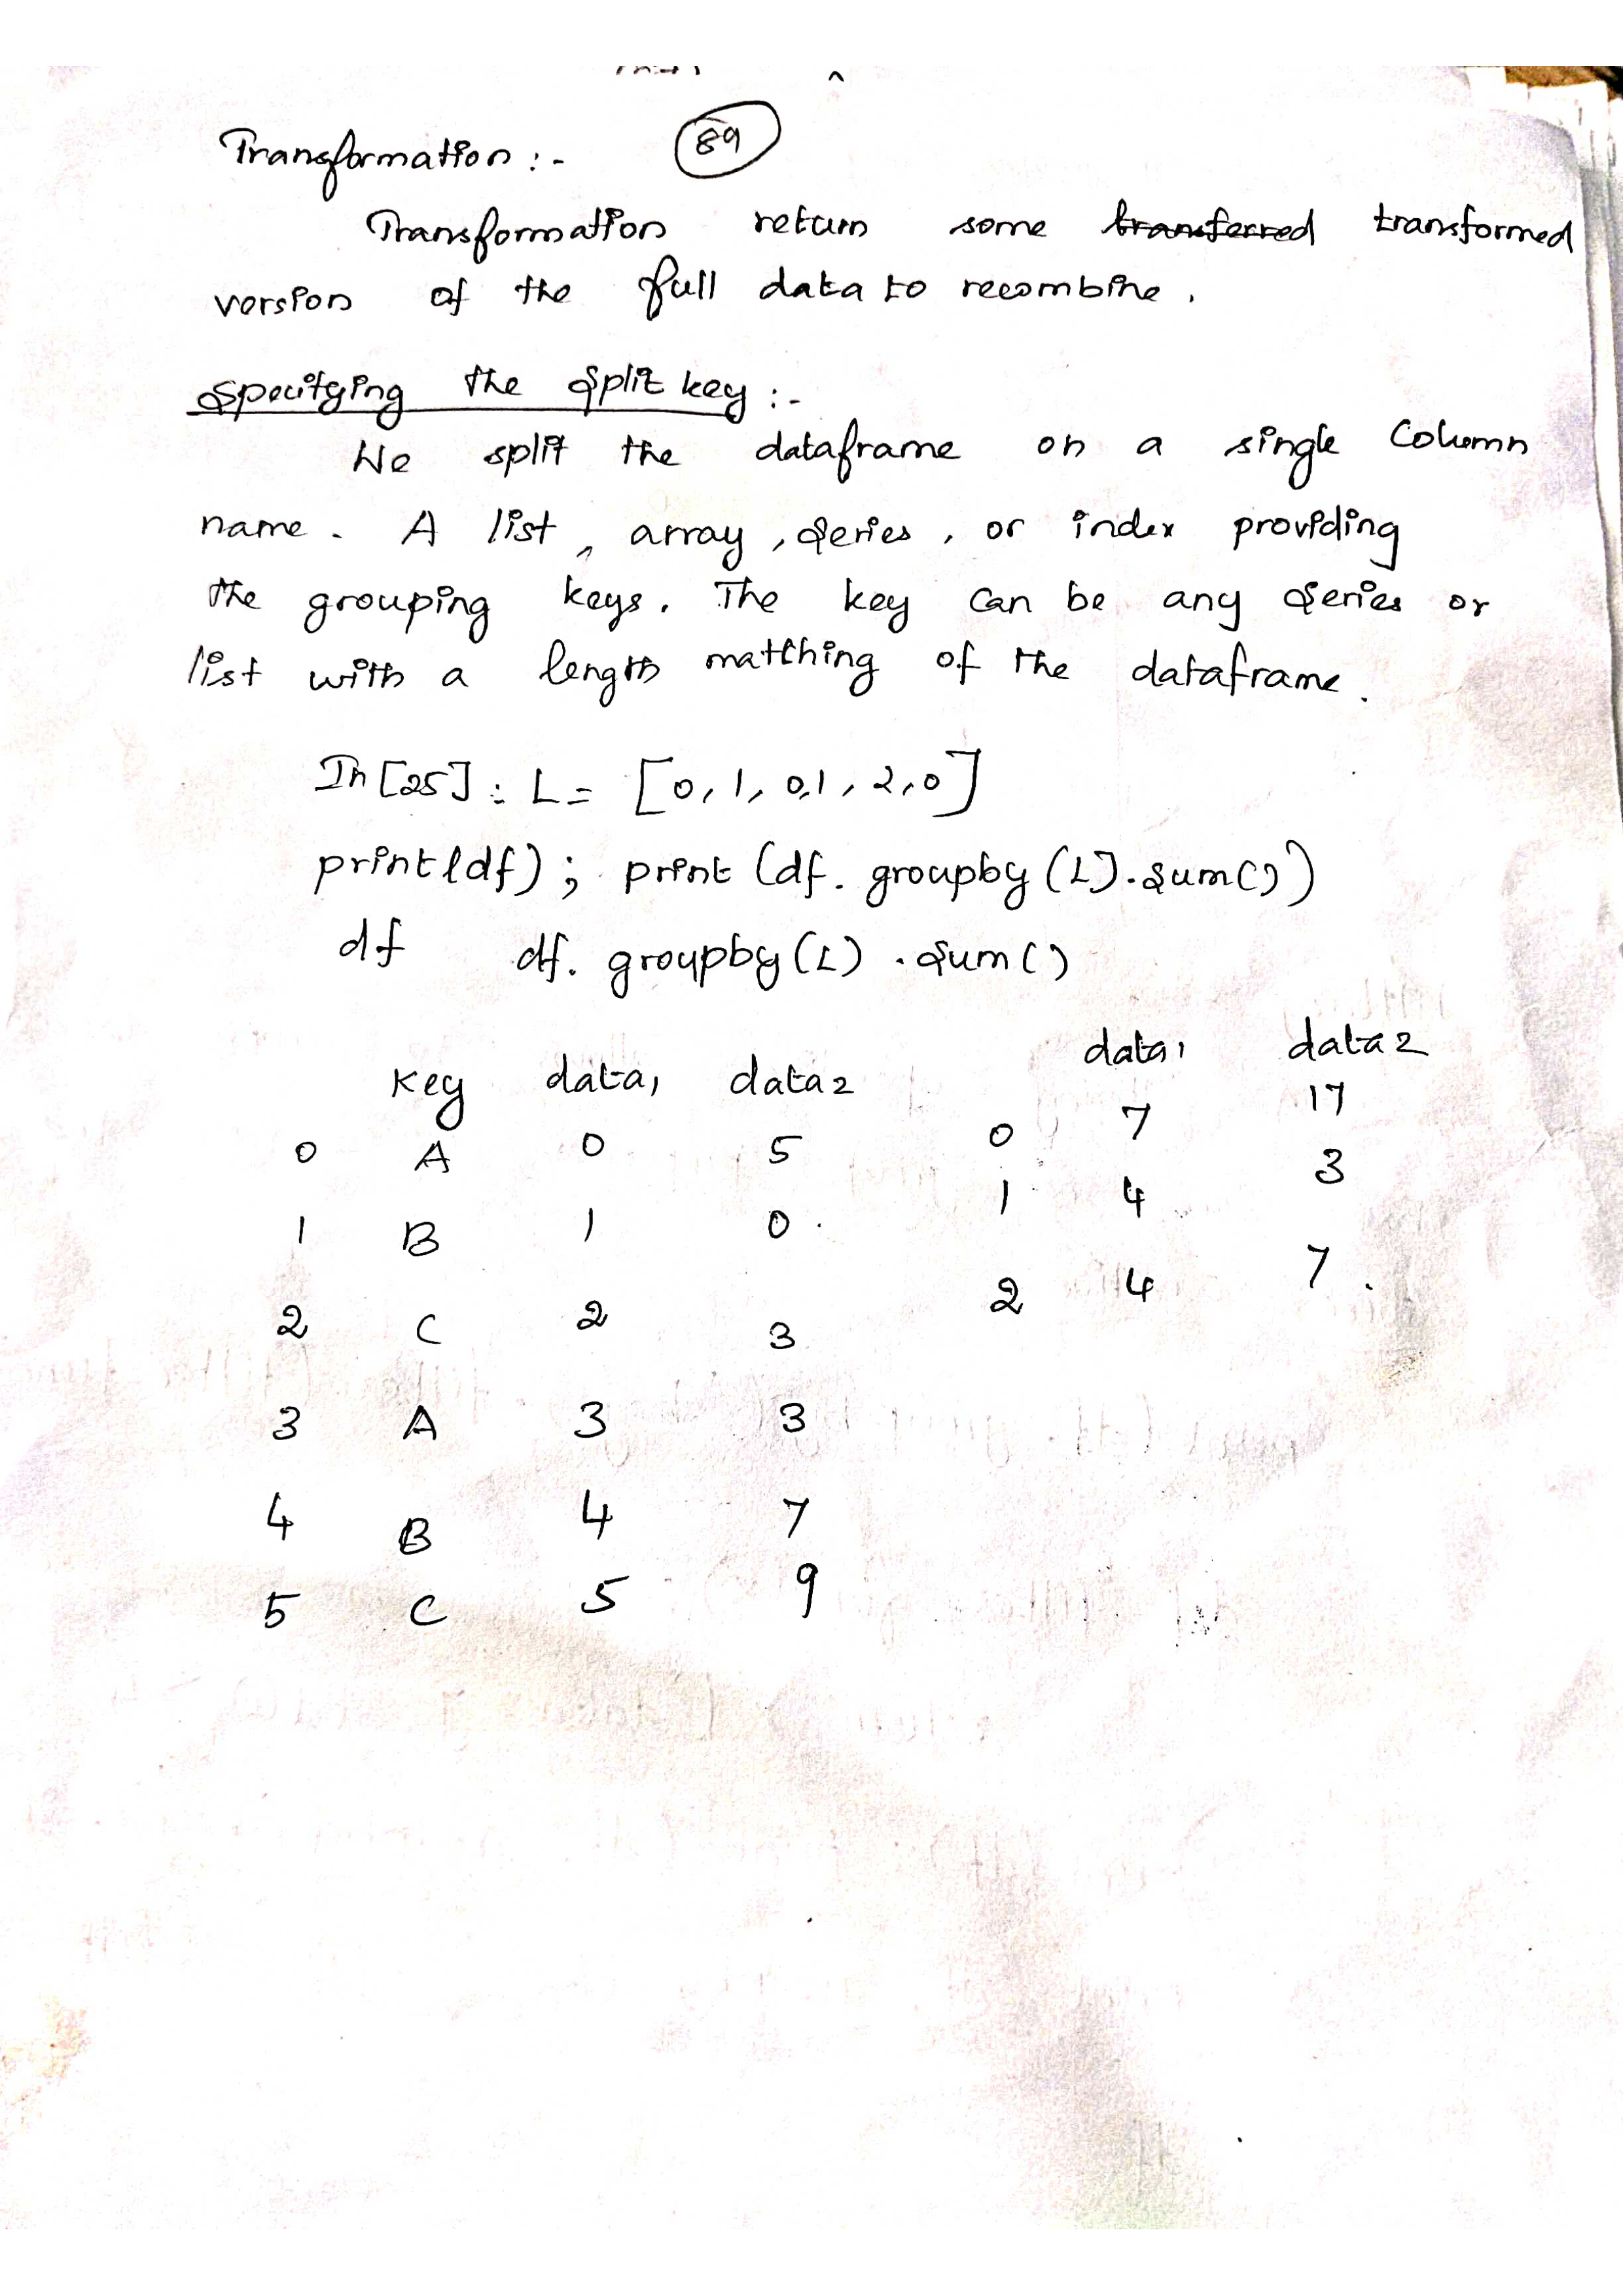 Transformation :-
89
Transformation return some transferred transformed
version of the full data to recombine.
Specifying the Split key :-
We split the dataframe on a single Column
name. A list, array, Series, or index providing
the grouping keys. The key can be any Series or
list with a length matching of the dataframe.
In [25] : L = [0, 1, 0, 1, 2, 0]
print(df) ; print (df. groupby (L).sum())
df df. groupby (L) . Sum ()
key data1 data2
0 A 0 5
1 B 1 0
2 C 2 3
3 A 3 3
4 B 4 7
5 C 5 9
data1 data2
0 7 17
1 4 3
2 4 7